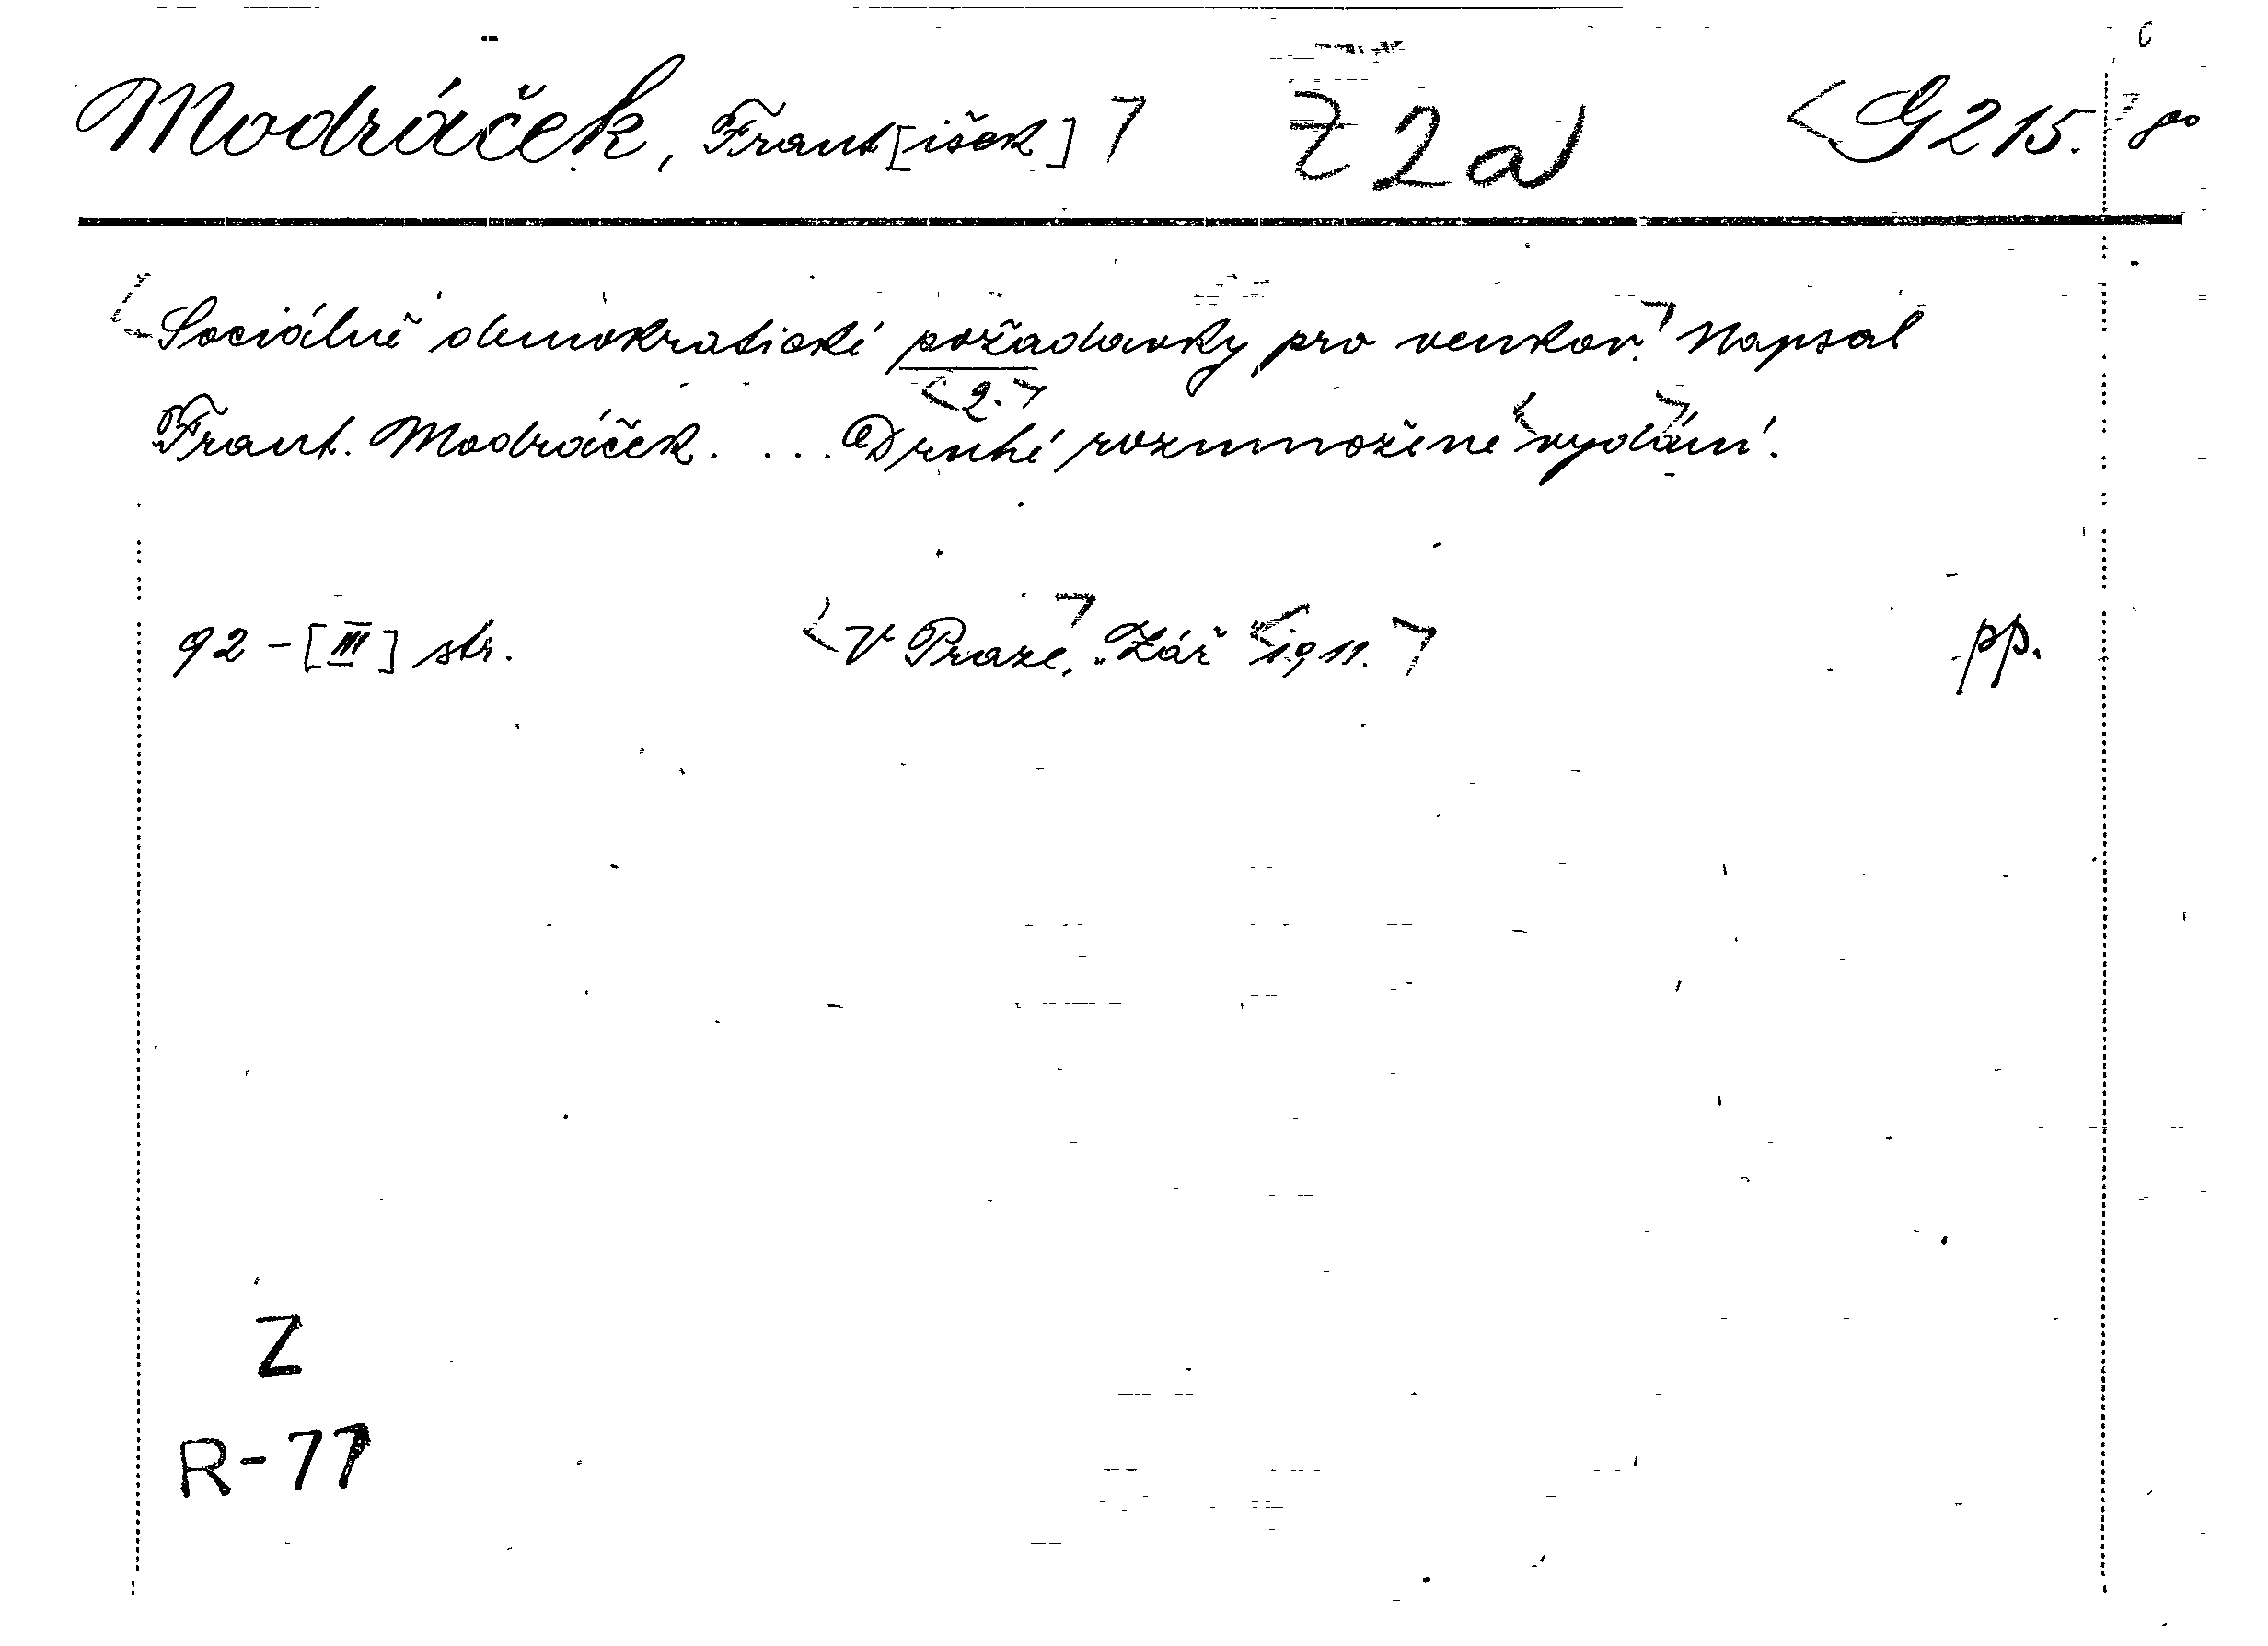 Modráček, Frant[išek] Z 2a G 215. 8°
Sociálně demokratické požadavky pro venkov. Napsal
2.
Frant. Modráček. ... Druhé rozmnožené vydání.
92-[III] str. V Praze, „Zář" 1911. pp.
Z
R-77